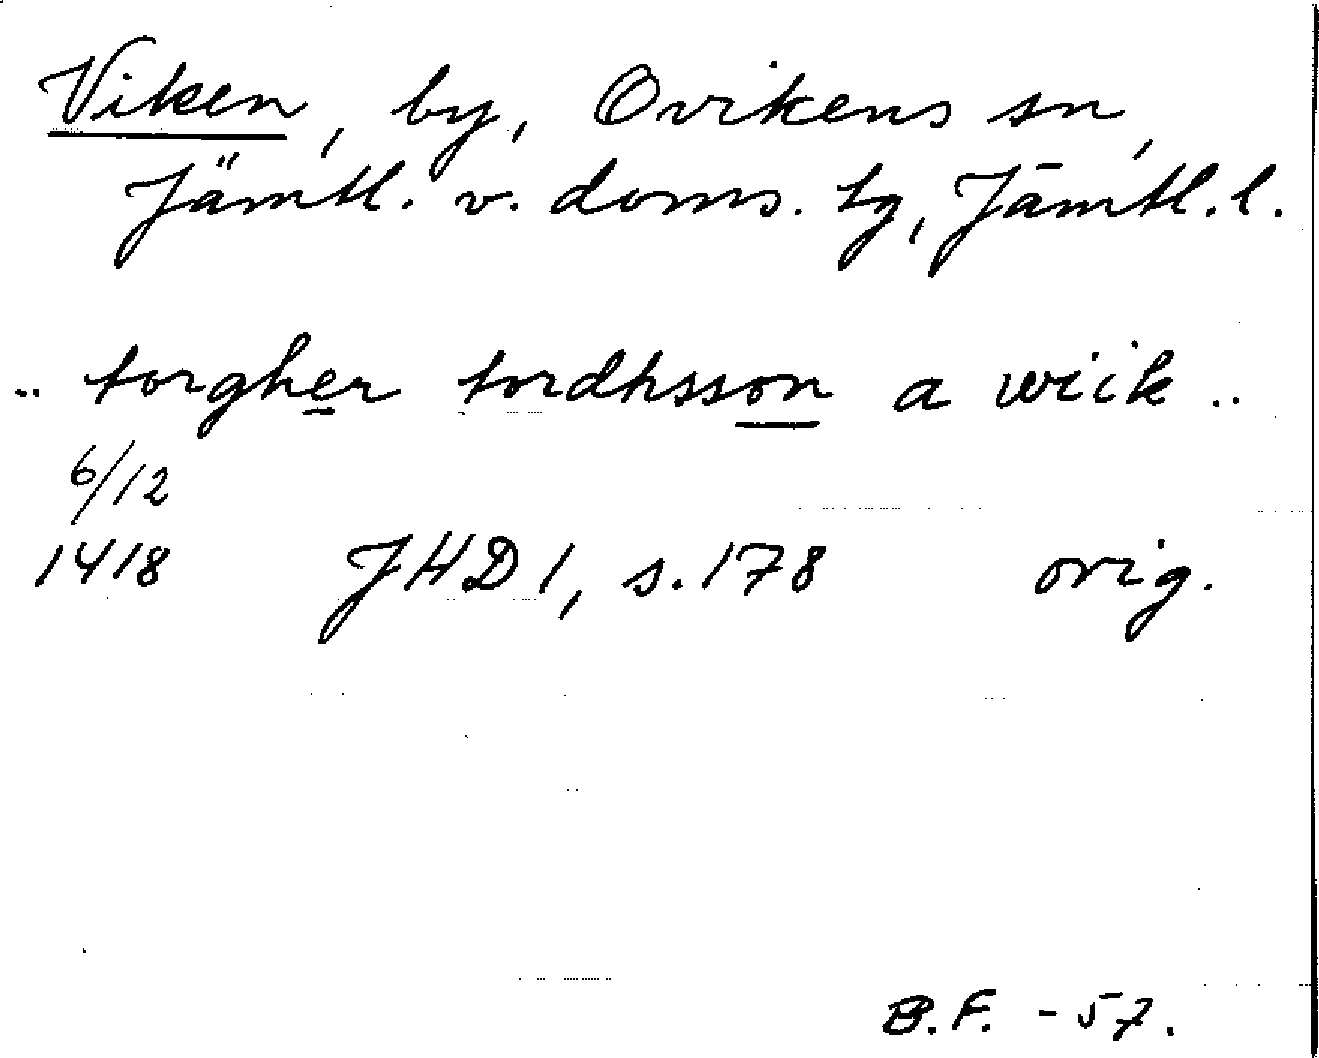 Viken, by, Ovikens sn,
Jämtl. v. doms. tg, Jämtl. l.
.. torgher tordhsson a wiik ..
6/12
1418 JHD 1, s. 178 orig.
B.F. - 57.